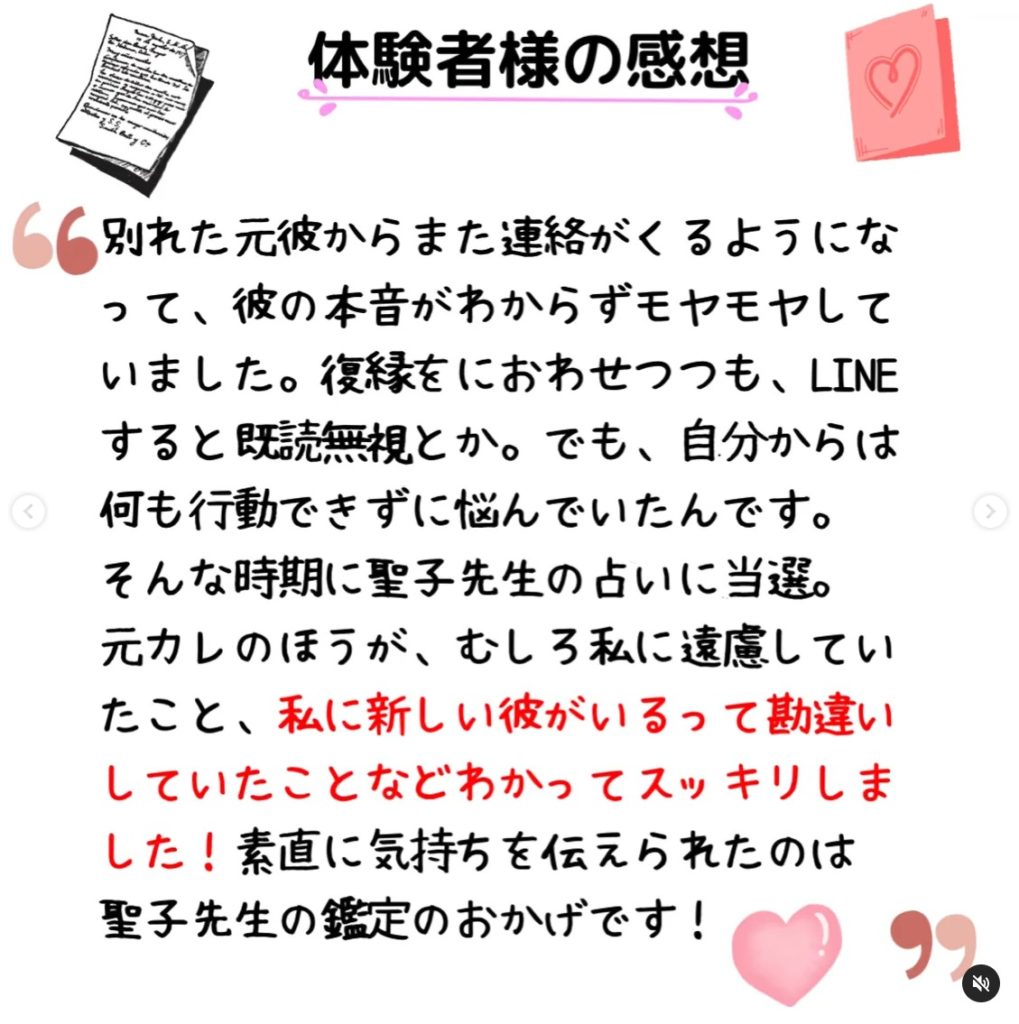 体験者様の感想
別れた元彼からまた連絡がくるようにな
って、彼の本音がわからずモヤモヤして
いました。復縁をにおわせつつも、LINE
すると既読無視とか。でも、自分からは
何も行動できずに悩んでいたんです。
そんな時期に聖子先生の占いに当選。
元カレのほうが、むしろ私に遠慮してい
たこと、私に新しい彼がいるって勘違い
していたことなどわかってスッキリしま
した！素直に気持ちを伝えられたのは
聖子先生の鑑定のおかげです！